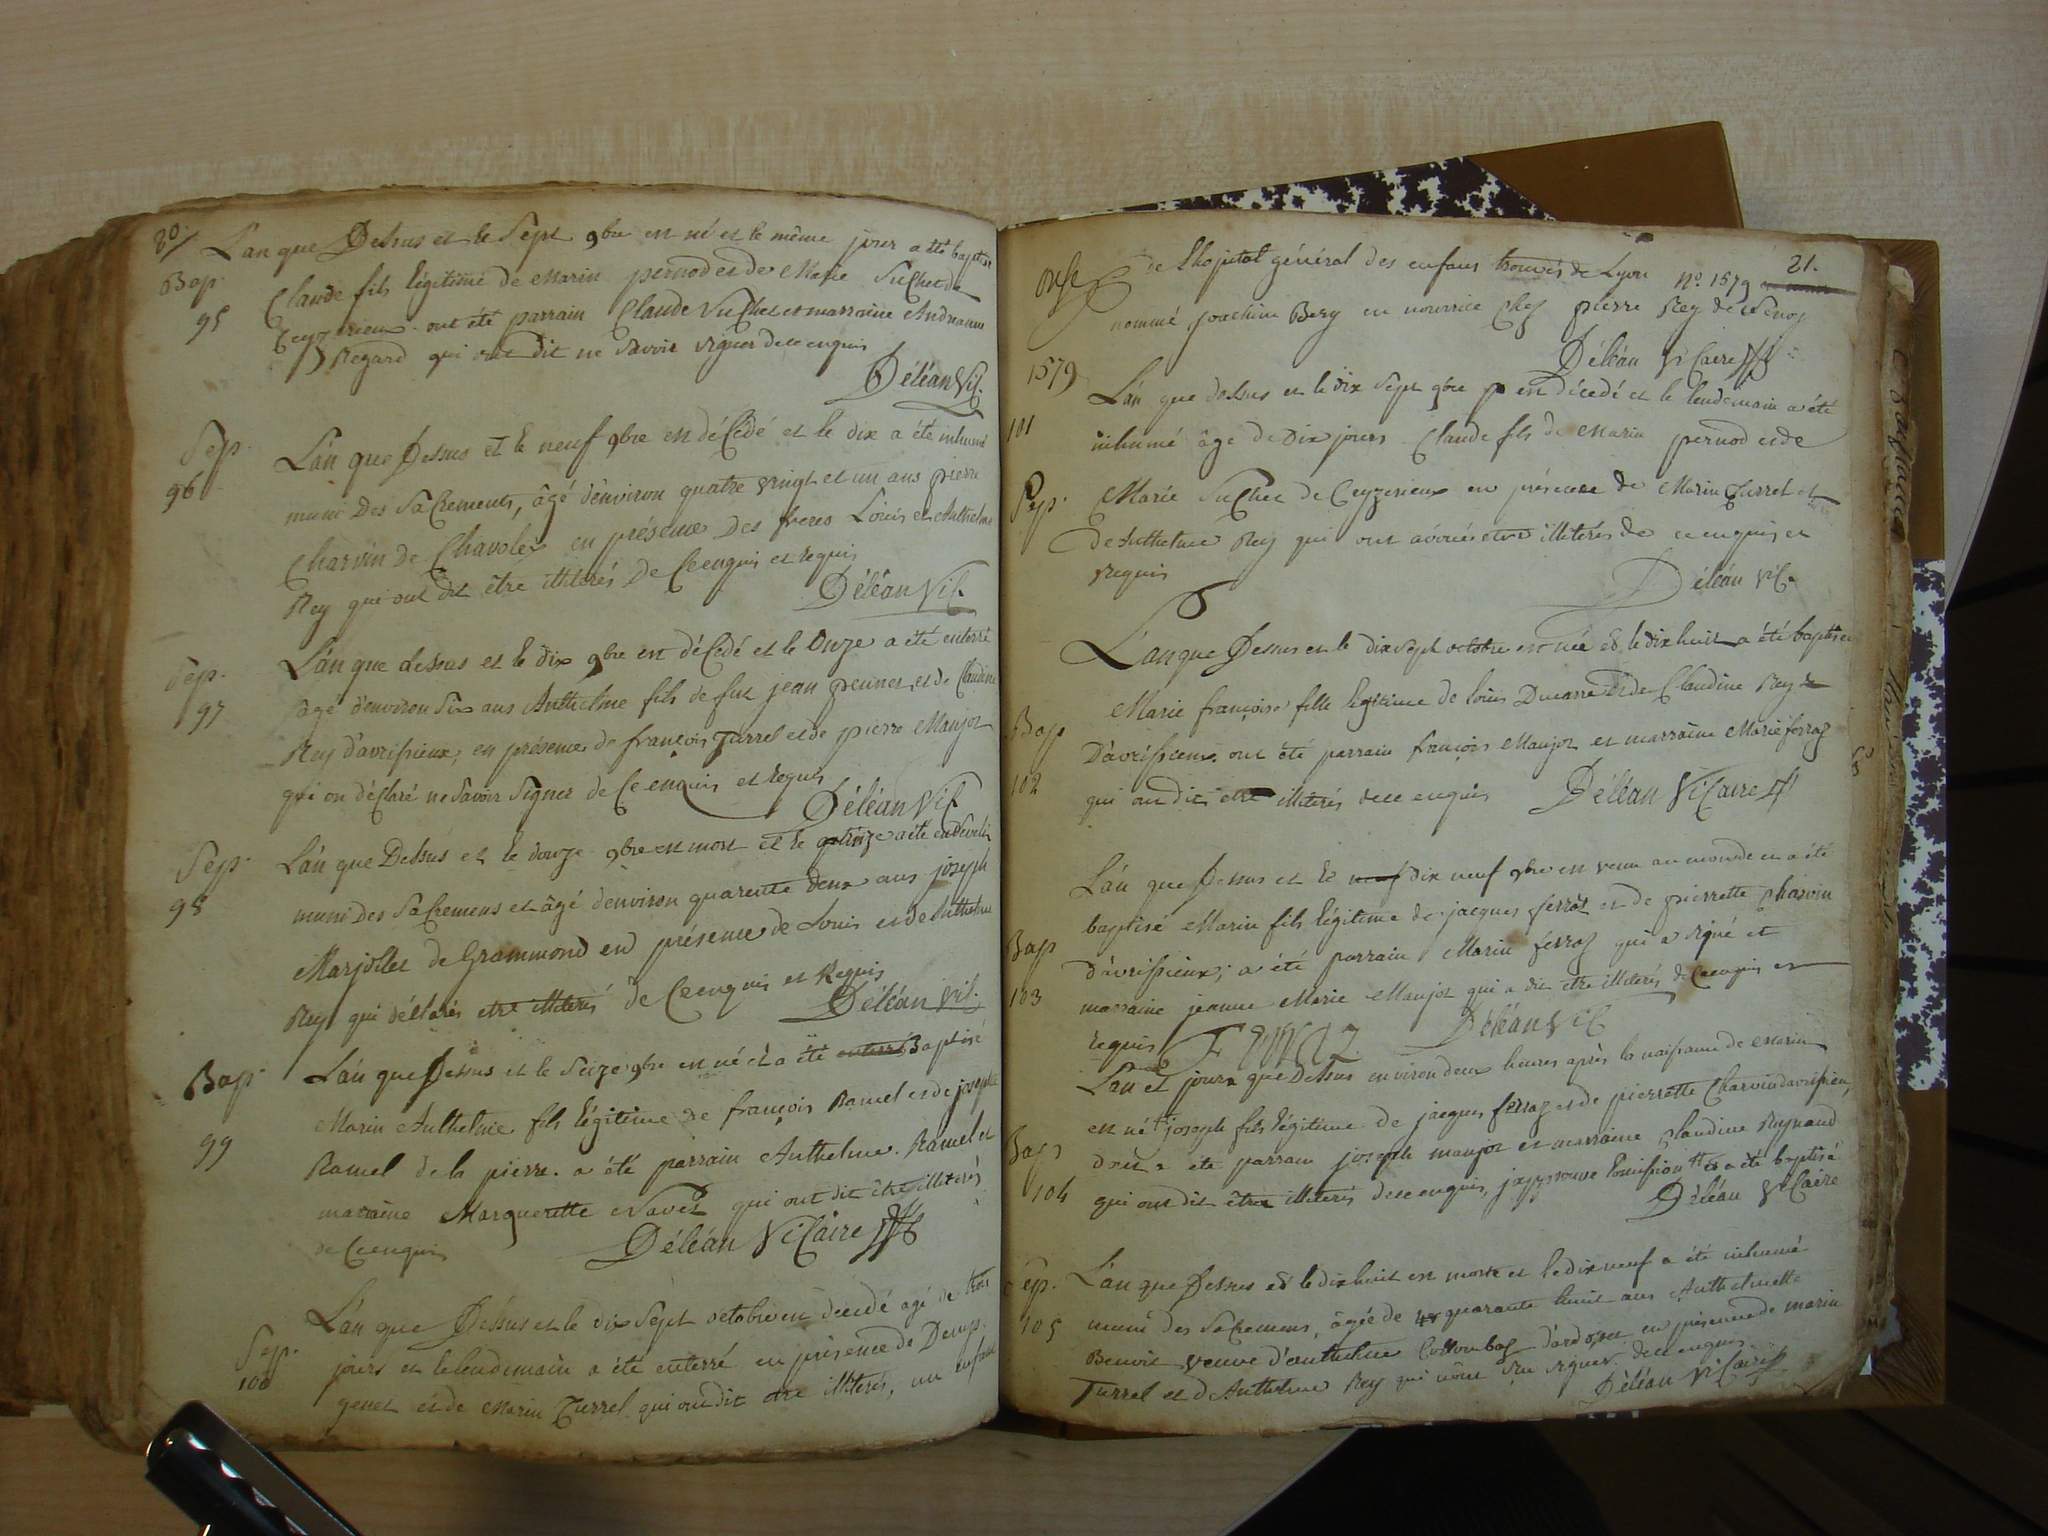 20.
Bap.
95
L'an que Dessus et le Sept 9bre est né et le même jour a été baptisé
Claude fils légitime de Marin pernod et de Marie Suchet de
Ceyzerieux. ont été parrain Claude Suchet et marraine Andréanne
Regard qui ont dit ne savoir signer de ce enquis
Déléan Vic.
Sep.
96
L'an que Dessus et le neuf 9bre est déCédé et le dix a été inhumé
muni Des SaCrements, âgé d'environ quatre vingt et un ans pierre
Charvin de Chavoley en présence Des freres Louis et Anthelme
Rey qui ont dit être illiterés De Ce enquis et requis
Déléan Vic.
Sep.
97
L'an que dessus et le dix 9bre est déCédé et le Onze a été enterré
âgé d'environ Six ans Anthelme fils de feu jean peunet et de Claudine
Rey d'avrissieux, en présence de françois Turrel et de pierre Maujot
qui on déClaré ne Savoir Signer de Ce enquis et requis
Déléan Vic
Sep.
98
L'an que Dessus et le douze 9bre est mort et le treize a été enseveli
muni Des SaCremens et âgé d'environ quarente deux ans joseph
Marjollet de Grammond en présence de Louis et de Anthelme
Rey qui déClarés etre illiterés de Ce enquis et Requis
Déléan Vic.
Bap.
99
L'an que Dessus et le Seize 9bre est né et a été enterré Baptisé
Marin Anthelme fils légitime de françois Ramel et de josephte
Ramel de la pierre. a été parrain Anthelme Ramel et
maraine Margueritte Navet qui ont dit être illiterés
de Ce enquis
Déléan ViCaire
Sep.
100
L'an que Dessus et le dix Sept octobre est décedé agé de trois
jours et le lendemain a été enterré en présence de Denys.
genet et de Marin Turrel qui ont dit etre illiterés, un enfant
21.
de Lhopital général des enfans trouvés de Lyon N° 1579
nommé joachim Bery en nourrice Chez pierre Rey de
Déléan ViCaire
1579
101
Sep.
L'an que dessus et le dix Sept 9bre est décedé et le lendemain a été
inhumé âgé de Dix jours Claude fils de Marin pernod et de
Marie Suchet de Ceyzerieux en présence de Marin Turrel et
de Anthelme Rey qui ont avoués etre illiterés de ce enquis et
requis
Déléan Vic.
Bap
102
L'an que Dessus et le dix Sept octobre est née et le dix huit a été baptisée
Marie françoise fille légitime de louis Ducarre et de Claudine Rey
D'avrissieux. ont été parrain françois Maujot et marraine Marie ferraz
qui ont dit etre illiterés de ce enquis
Déléan ViCaire
Bap
103
L'an que Dessus et le neuf dix neuf 9bre est venu au monde et a été
baptisé Marin fils légitime de jacques ferraz et de pierrette Charvin
d'avrissieux; a été parrain Marin ferraz qui a signé et
marraine jeanne Marie Maujot qui a dit etre illiterés de Ce enquis et
requis
Déléan Vic
Bap
104
L'an et jour que Dessus environ deux heures après la naissance de Marin
est né joseph fils légitime de jacques ferraz et de pierrette Charvin d'avrissieux,
dont a été parrain joseph maujot et marraine Claudine Reynaud
qui ont dit être illiterés de ce enquis, japprouve l'omission et a été baptisé
Déléan ViCaire
Sep.
105
L'an que Dessus et le dix huit est morte et le dix neuf a été inhumé
muni des SaCremens, âgée de quarante huit ans Anthelmette
Benoit veuve d'anthelme Collombaz d'ardosset en présence de marin
Turrel et d'Anthelme Rey qui n'ont Su signer de ce enquis
Déléan ViCaire